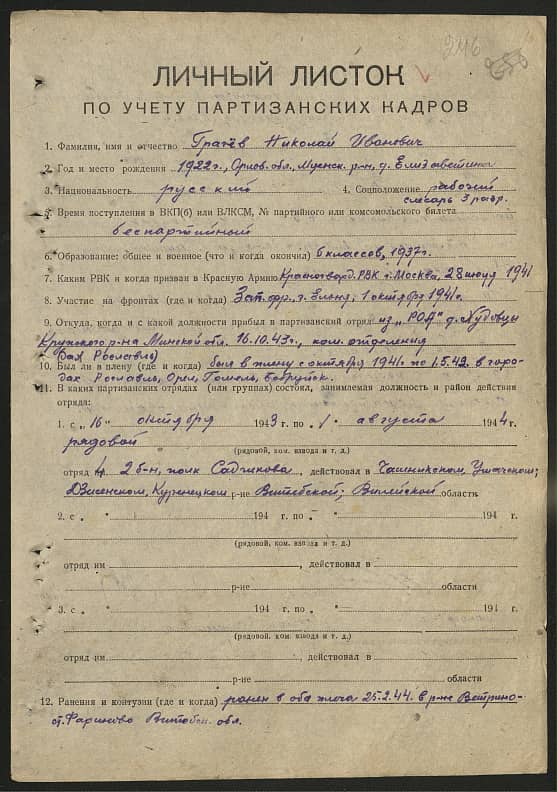 246
ЛИЧНЫЙ ЛИСТОК
ПО УЧЕТУ ПАРТИЗАНСКИХ КАДРОВ
1. Фамилия, имя и отчество Грачёв Николай Иванович
2. Год и место рождения 1922г., Орлов. обл., Мценск. р-н, д. Елизаветина
3. Национальность русский 4. Соцположение рабочий
слесарь 3 разр.
5. Время поступления в ВКП(б) или ВЛКСМ, № партийного или комсомольского билета
беспартийный
6. Образование: общее и военное (что и когда окончил) 6 классов, 1937г.
7. Каким РВК и когда призван в Красную Армию Красногвард. РВК г. Москва, 28 июля 1941
8. Участие на фронтах (где и когда) Зап. фр. г. Ельня; 1 октября 1941г.
9. Откуда, когда и с какой должности прибыл в партизанский отряд из „РОА" д. Худовцы
Крупского р-на Минской обл. 16.10.43г., ком. отделения
10. Был ли в плену (где и когда) был в плену с октября 1941 по 1.5.42. в горо-
дах Рославль)
дах Рославль, Орел, Гомель, Бобруйск.
11. В каких партизанских отрядах (или группах) состоял, занимаемая должность и район действия
отряда:
1. с „16" октября 1943 г. по „1" августа 1944 г.
рядовой
(рядовой, ком. взвода и т. д.)
отряд 4, 2 б-н, полк Садчикова, действовал в Чашникском, Ушачском;
Дзисенском, Куренецком р-не Витебской; Вилейской области.
2. с „ " 194 г. по „ " 194 г.
(рядовой, ком. взвода и т. д.)
отряд им , действовал в
р-не области
3. с „ " 194 г. по „ " 194 г.
(рядовой, ком. взвода и т. д.)
отряд им , действовал в
р-не области
12. Ранения и контузии (где и когда) ранен в оба плеча 25.2.44. в р-не Ветрино-
ст. Фариново Витебск. обл.